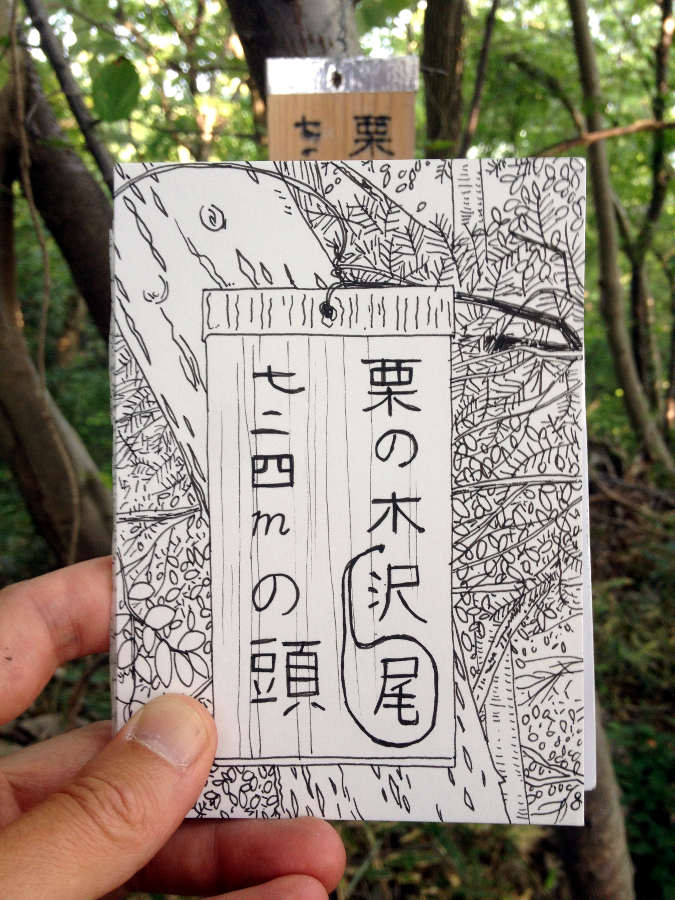 栗
七二
栗の木沢尾
七二四mの頭